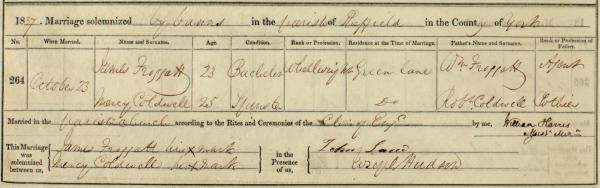 1837. Marriage solemnized by banns in the Parish of Sheffield in the County of York
No. When Married. Name and Surname. Age. Condition. Rank or Profession. Residence at the Time of Marriage. Father's Name and Surname. Rank, or Profession of Father.
264 October 23 James Froggatt 23 Bachelor Wheelwright Green Lane Wm Froggatt Agent
Mercy Coldwell 25 Spinster Do Robt Coldwell Clothier
Married in the parish church according to the Rites and Ceremonies of the Ch. of Eng. by me, William Harris
This Marriage was solemnized between us, James Froggatt his x mark
Mercy Coldwell her x mark
In the Presence of us, John
Joseph Hudson